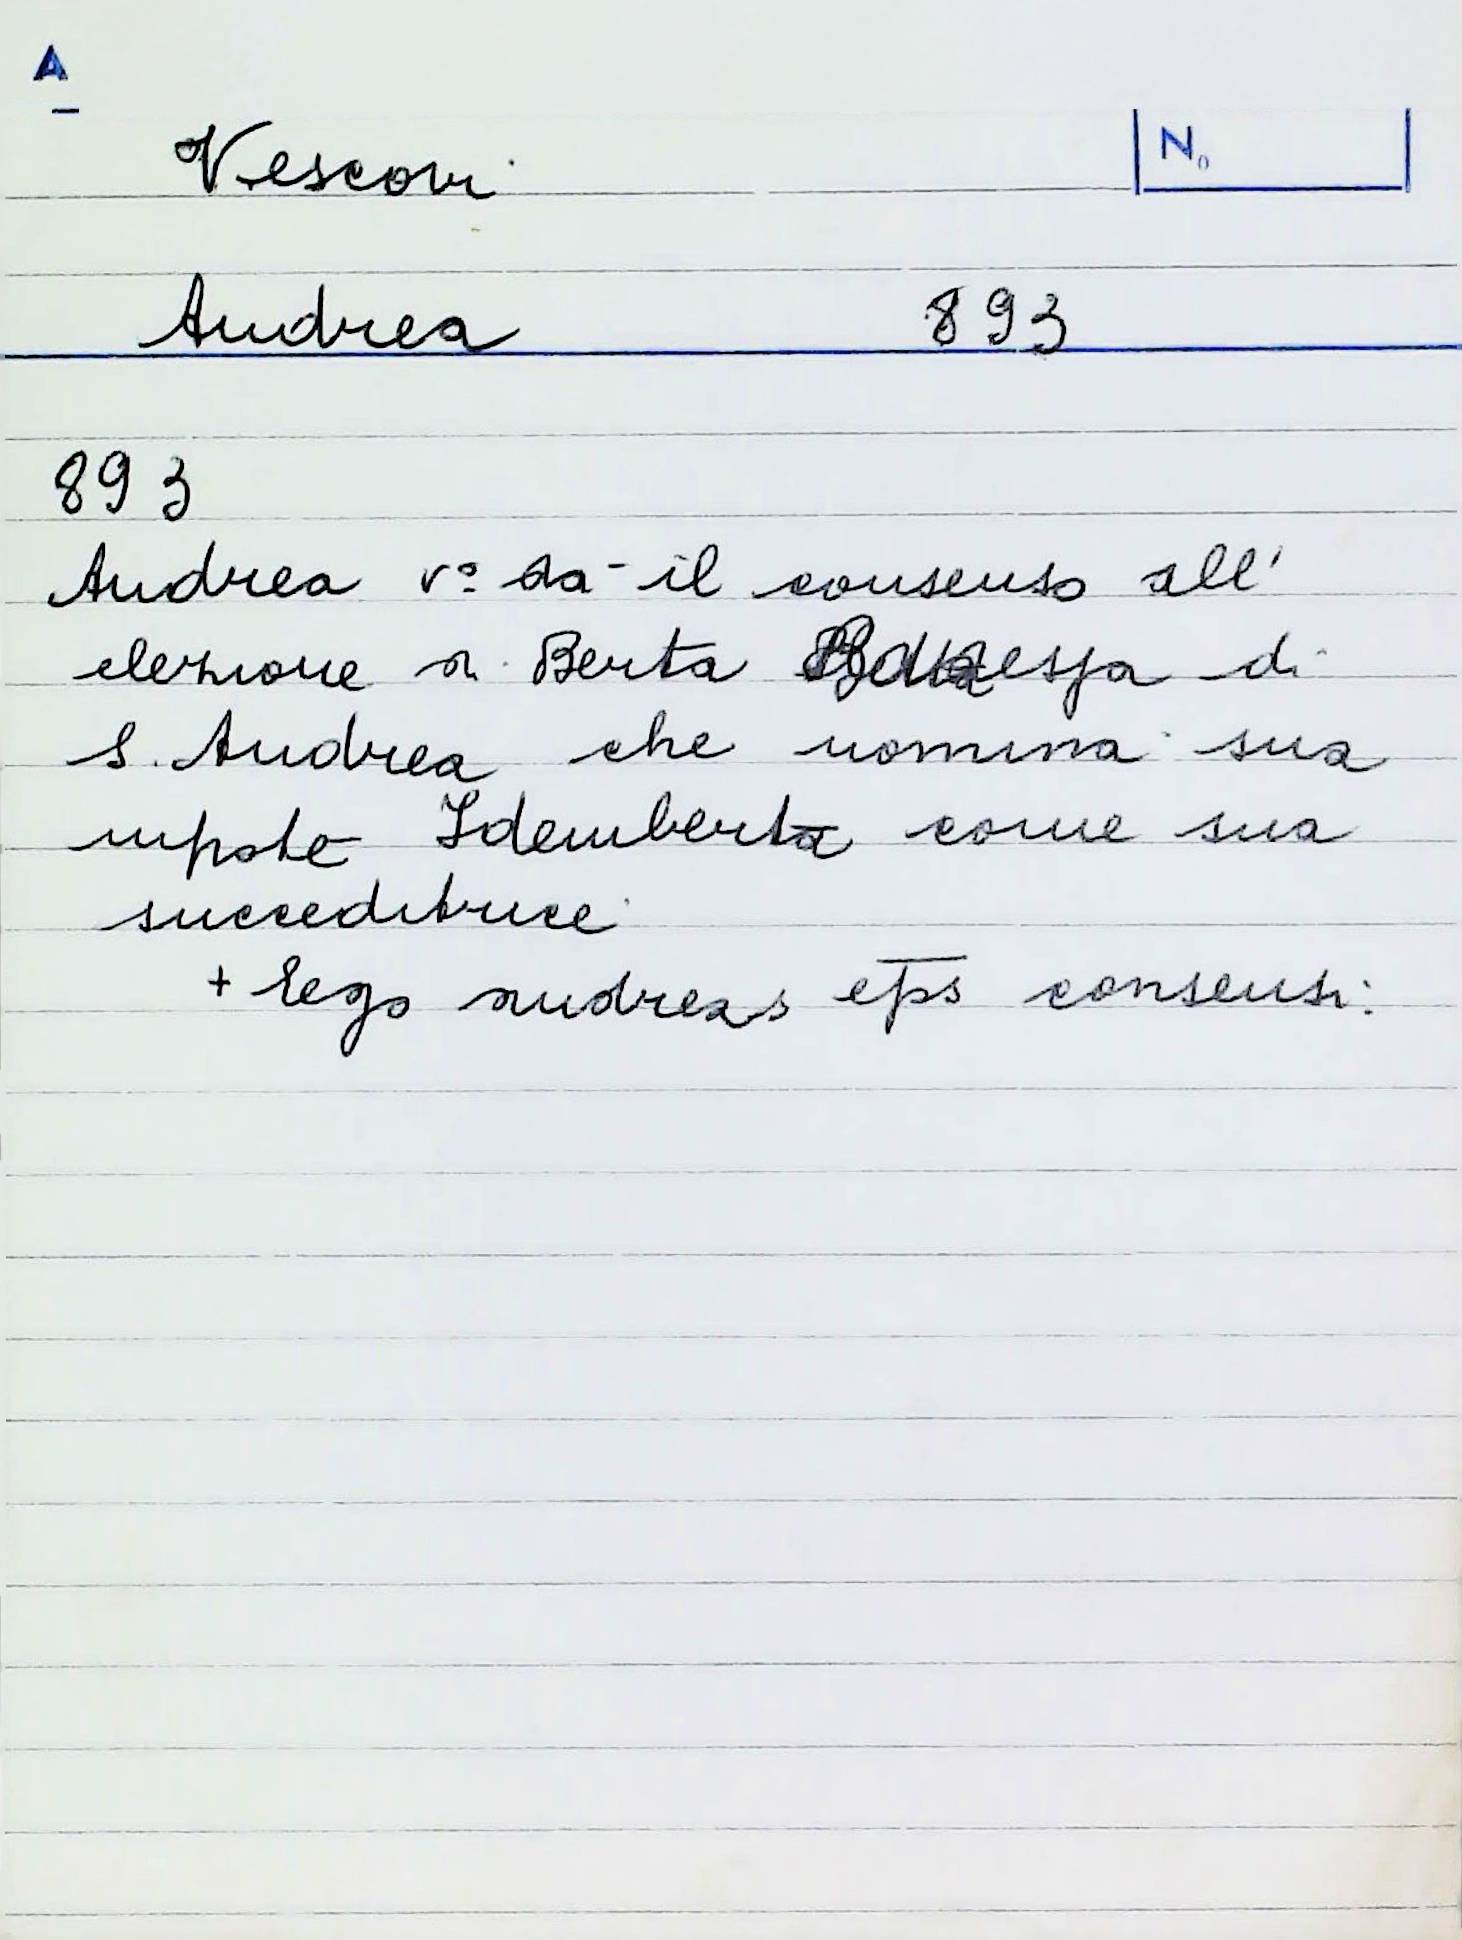 A
Vescovi
No
Andrea 893
893
Andrea vº da il consenso all'
elezione a Berta Badessa di
S. Andrea che nomina sua
nipote Idemberta come sua
succeditrice
+ ego andreas eps consensi: